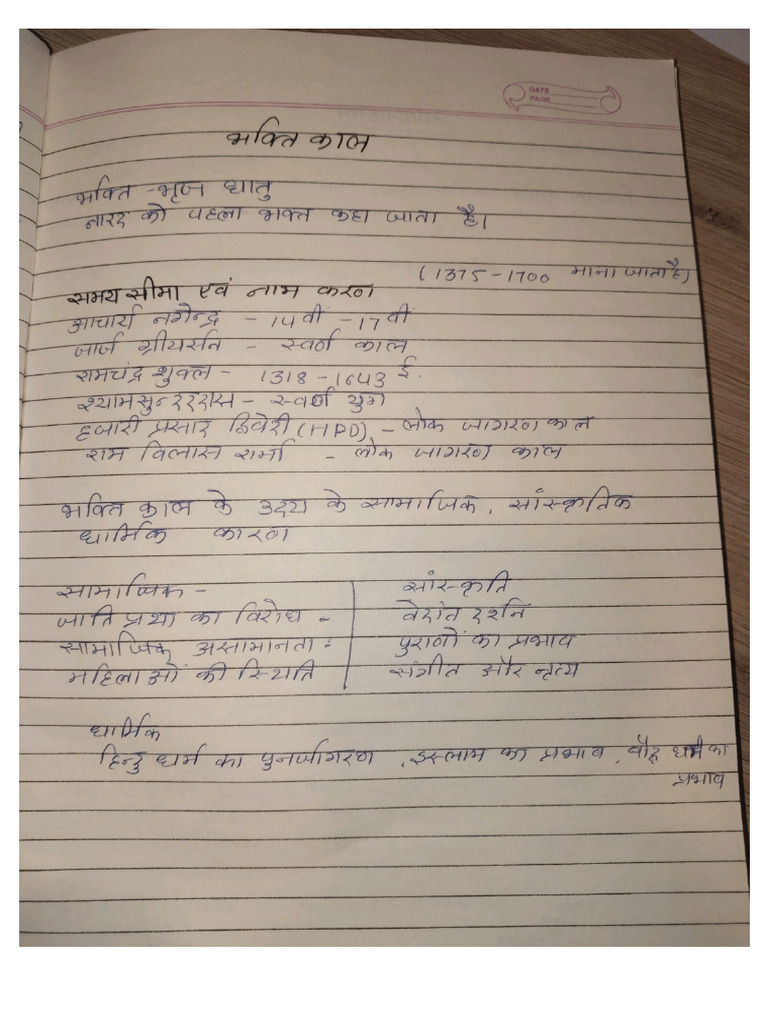 DATE
PAGE
भक्ति काल
भक्ति - भृज धातु
नारद को पहला भक्त कहा जाता है।
(1375-1700 माना जाता है)
समय सीमा एवं नाम करण
आचार्य नगेन्द्र - 14वीं - 17वीं
जार्ज ग्रीयर्सन - स्वर्ण काल
रामचंद्र शुक्ल - 1318 - 1643 ई.
श्यामसुन्दरदास - स्वर्ण युग
हजारी प्रसाद द्विवेदी (HPD) - लोक जागरण काल
राम विलास शर्मा - लोक जागरण काल
भक्ति काल के उदय के सामाजिक, सांस्कृतिक
धार्मिक कारण
सामाजिक -
जाति प्रथा का विरोध -
सामाजिक असामानता :
महिलाओं की स्थिति
सांस्कृति
वेदांत दर्शन
पुराणों का प्रभाव
संगीत और नृत्य
धार्मिक
हिन्दु धर्म का पुनर्जागरण, इस्लाम का प्रभाव, बौद्ध धर्म का
प्रभाव